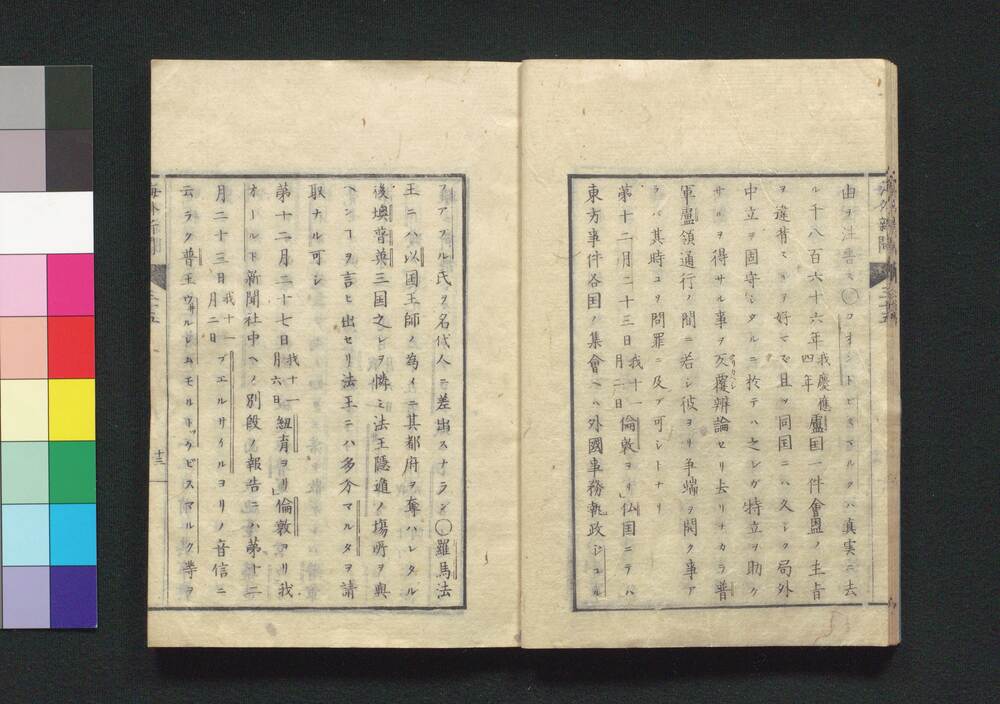 由ヲ注告ス〇コオントビスマルクハ真実ニ去
ル千八百六十六年我慶應四年盧国一件會盟ノ主旨
ヲ違背スルヲ好マズ且ツ同国ニハ久シク局外
中立ヲ固守シタルニ於テハ之レガ特立ヲ助ケ
サルヲ得サル事ヲ反覆辨論セリ去リナカラ普
軍盧領通行ノ間ニ若シ彼ヨリ争端ヲ開ク事ア
ラバ其時ユヲ問罪ニ及ブ可シトナリ
第十二月二十三日我十一月二日倫敦ヨリ」仏国ニテハ
東方事件各国ノ集會ヘハ外國事務執政ジユル
フアフル氏ヲ名代人ニ差出スナラン〇羅馬法
王ニハ以国王師ノ為イニ其都府ヲ奪ハレタル
後墺普英三国之レヲ憐ミ法王隠遁ノ塲所ヲ與
ヘン」ヲ言ヒ出セリ法王ニハ多分マルタヲ請
取ナル可シ
第十二月二十七日我十一月六日紐育ヨリ」倫敦ヨリ我
オールド新聞社中ヘノ別段ノ報告ニハ第十二
月二十三日我十一月二日ブエルサイルヨリノ音信ニ
云ラク普王ウサルレムモルトケビスマルク等ヲ
海外新聞
三十五
十三
海外新聞
三十五